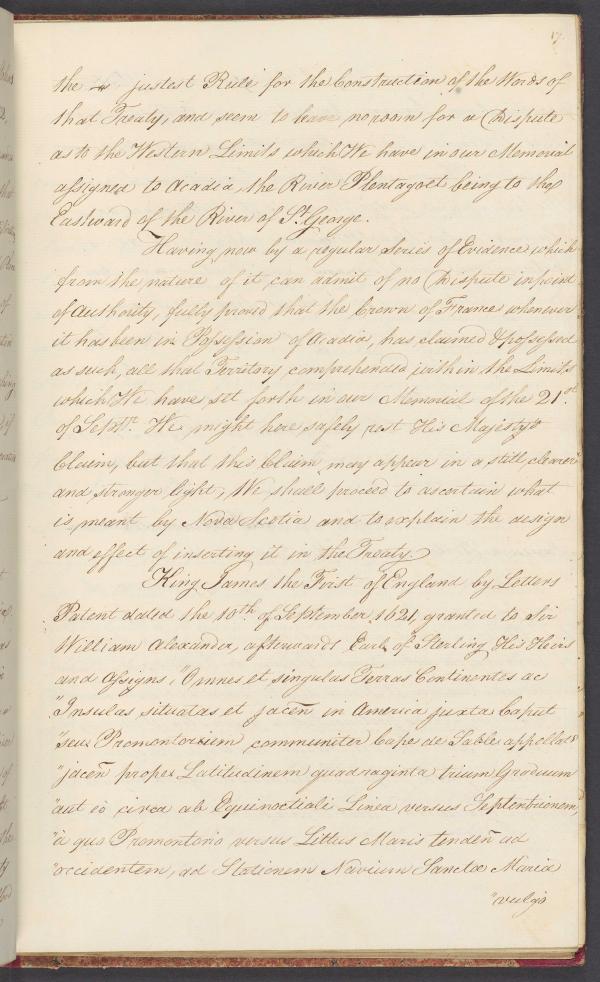 17.
the justest Rule for the Construction of the Words of
that Treaty, and seem to leave no room for a Dispute
as to the Western Limits which We have in our Memorial
assigned to Acadia, the River Pentagoet being to the
Eastward of the River of St. George.
Having now by a regular Series of Evidence which
from the nature of it can admit of no Dispute in point
of Authority, fully proved that the Crown of France whenever
it has been in Possession of Acadia, has claimed & possessed
as such, all that Territory comprehended within the Limits
which We have set forth in our Memorial of the 21st.
of Septr. We might here safely rest His Majesty's
Claim, but that this Claim may appear in a still clearer
and stronger light, We shall proceed to ascertain what
is meant by Nova Scotia and to explain the design
and effect of inserting it in the Treaty.
King James the First of England by Letters
Patent dated the 10th. of September 1621, granted to Sir
William Alexander, afterwards Earl of Sterling His Heirs
and Assigns, "Omnes et singulas Terras Continentes ac
"Insulas situatas et jaceñ in America juxta Caput
"seu Promontorium communiter Cape de Sable appellat
"jaceñ prope Latitudinem quadraginta trium Graduum
"aut eo circa ab Equinoctiali Linea versus Septentrionem,
"à quo Promontorio versus Littus Maris tendeñ ad
"occidentem, ad Stationem Navium Sanctæ Mariæ
"vulgo